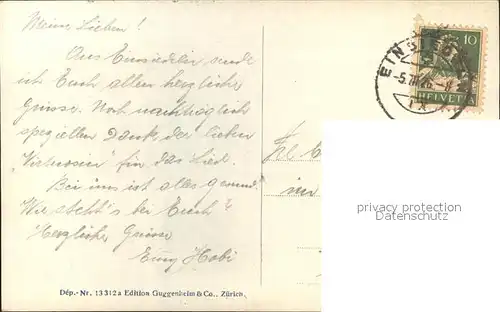 Meine Lieben!
Aus Einsiedeln sende
ich Euch allen herzliche
Grüsse. Noch nachträglich
speziellen Dank der lieben
"Virtuosin" für das Lied.
Bei uns ist alles gesund.
Wie steht's bei Euch?
Herzliche Grüsse
Hobi
10
HELVETIA
EINSIEDELN
-5.
in
privacy protection
Datenschutz
Dép.-Nr. 13312a Edition Guggenheim & Co., Zürich